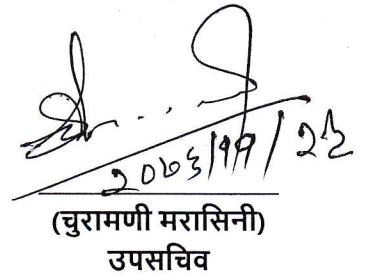 २०७६/११/२८
(चुरामणी मरासिनी)
उपसचिव